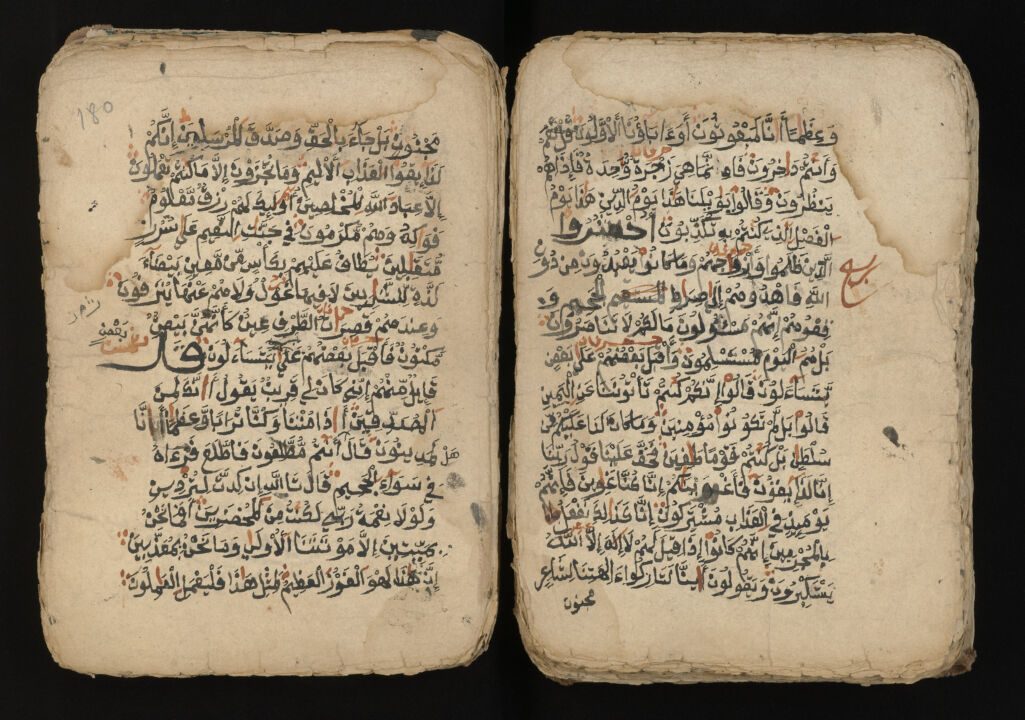 وعظما أنا لمبعوثون أو ءاباؤنا الأولون قل نعم
وأنتم داخرون فإنما هي زجرة وحدة فإذا هم
ينظرون وقالوا يويلنا هذا يوم الدين هذا يوم
الفصل الذي كنتم به تكذبون احشروا
الذين ظلموا وأزوجهم وما كانوا يعبدون من دون
الله فاهدوهم إلى صراط الجحيم و
ربع
قفوهم إنهم مسئولون ما لكم لا تناصرون
بل هم اليوم مستسلمون وأقبل بعضهم على بعض
يتساءلون قالوا إنكم كنتم تأتوننا عن اليمين
قالوا بل لم تكونوا مؤمنين وما كان لنا عليكم من
سلطن بل كنتم قوما طغين فحق علينا قول ربنا
إنا لذايقون فأغوينكم إنا كنا غوين فإنهم
يوميذ في العذاب مشتركون إنا كذلك نفعل
بالمجرمين إنهم كانوا إذا قيل لهم لا إله إلا الله
يستكبرون ويقولون أينا لتاركوا ءالهتنا لشاعر
مجنون
180
مجنون بل جاء بالحق وصدق المرسلين إنكم
لذايقوا العذاب الأليم وما تجزون إلا ما كنتم تعملون
إلا عباد الله المخلصين أوليك لهم رزق معلوم
فواكه وهم مكرمون في جنت النعيم على سرر
متقبلين يطاف عليهم بكأس من معين بيضاء
لذة للشربين لا فيها غول ولا هم عنها ينزفون
وعندهم قصرت الطرف عين كأنهن بيض
مكنون فأقبل بعضهم على بعض يتساءلون قال
قايل منهم إني كان لي قرين يقول أءنك لمن
المصدقين أءذا متنا وكنا ترابا وعظما أءنا
لمدينون قال هل أنتم مطلعون فاطلع فرءاه
في سواء الجحيم قال تالله إن كدت لتردين
ولولا نعمة ربي لكنت من المحضرين أفما نحن
بميتين إلا موتتنا الأولى وما نحن بمعذبين
إن هذا لهو الفوز العظيم لمثل هذا فليعمل العملون